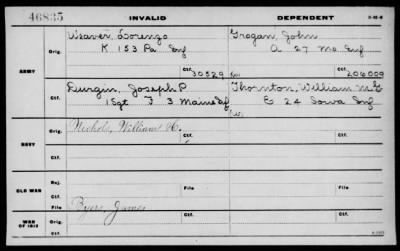 46835 INVALID DEPENDENT
ARMY
Orig. Weaver, Lorenzo
K 153 Pa Inf
Ctf. 30529
Grogan, John
A 27 Mo Inf
Ctf. 206009
Ctf. Durgin, Joseph P
1 Sgt F 3 Maine Inf
Thornton, William
E 24 Iowa Inf
NAVY
Orig. Nichols, William H.
Ctf. File File
OLD WAR
Rej.
Ctf. File File
WAR OF 1812
Orig. Byers, James
Ctf.